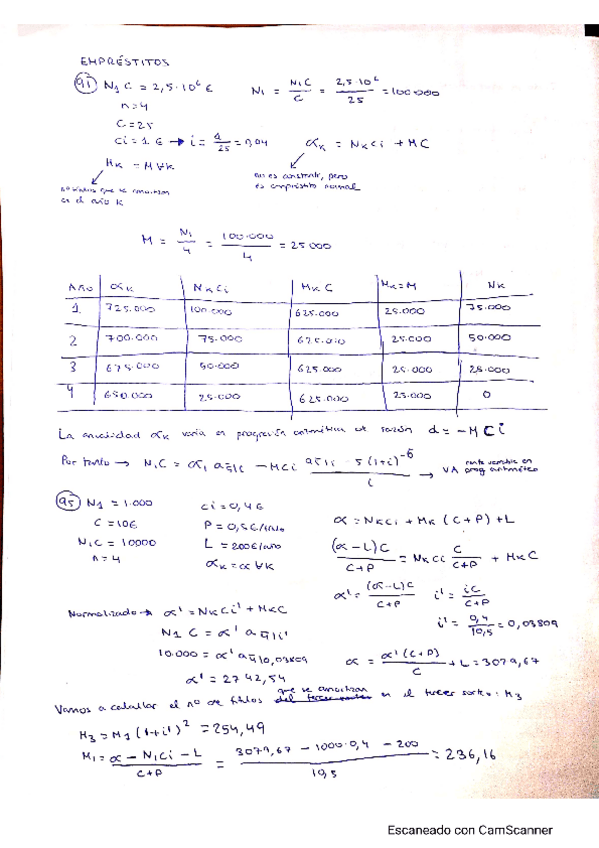 EMPRÉSTITOS
91) N1 C = 2,5·10⁶ € N1 = N1C / C = 2,5·10⁶ / 25 = 100.000
n = 4
C = 25
Ci = 1 € → i = 1/25 = 0,04 αK = NK Ci + MC
MK = M ∀K no es constante, pero
es empréstito normal
que se amortizan
en el año K
M = N1 / 4 = 100.000 / 4 = 25.000
AÑO αK NK Ci MK C MK = M NK
1 725.000 100.000 625.000 25.000 75.000
2 700.000 75.000 625.000 25.000 50.000
3 675.000 50.000 625.000 25.000 25.000
4 650.000 25.000 625.000 25.000 0
La anualidad αK varia en progresión aritmética de razón d = -MCi
Por tanto → N1C = α1 a n̅|i - MCi → VA renta variable en
prog aritmética
95) N1 = 1.000 Ci = 0,4 € α = NK Ci + MK (C+P) + L
C = 10€ P = 0,5 €/título
N1C = 10000 L = 200€/año (α-L)C / C+P = NK Ci C / C+P + MK C
n = 4 αK = α ∀K
α' = (α-L)C / C+P i' = iC / C+P
Normalizado → α' = NK Ci' + MK C
i' = 0,4 / 10,5 = 0,03809
N1 C = α' a n̅|i'
10.000 = α' a 4̅|0,03809 α = α'(C+P) / C + L = 3079,67
α' = 2742,54
Vamos a calcular el nº de títulos que se amortizan en el tercer sorteo: M3
M3 = M1 (1+i')² = 254,49
M1 = α - N1Ci - L / C+P = 3079,67 - 1000·0,4 - 200 / 10,5 = 236,16
Escaneado con CamScanner